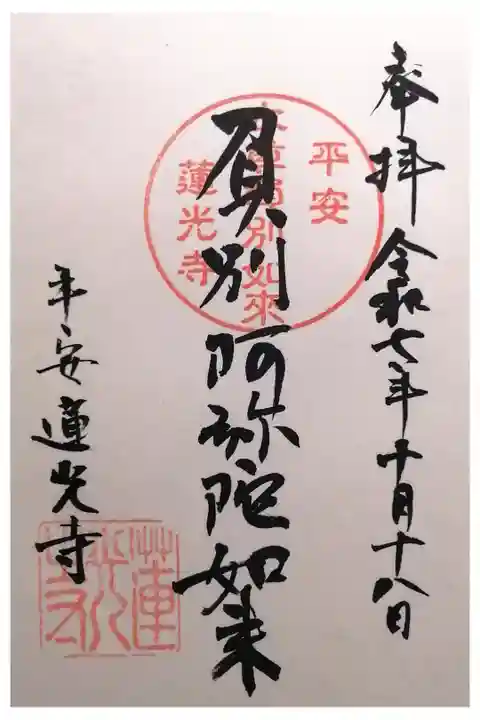 奉拝 令和七年十月十八日
負別阿弥陀如来
平安
別如來
蓮光寺
平安 蓮光寺
蓮光寺